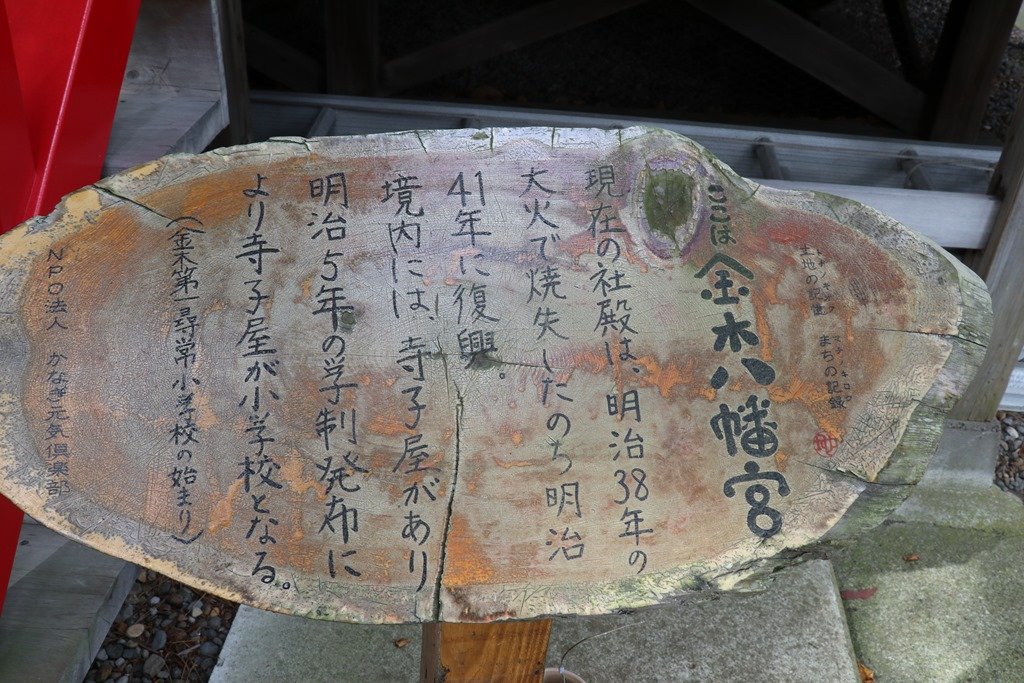 土地の記憶 まちの記録
ここは
金木八幡宮
現在の社殿は、明治38年の
大火で焼失したのち明治
41年に復興。
境内には、寺子屋があり
明治5年の学制発布に
より寺子屋が小学校となる。
(金木第一尋常小学校の始まり)
NPO法人 かなぎ元気倶楽部